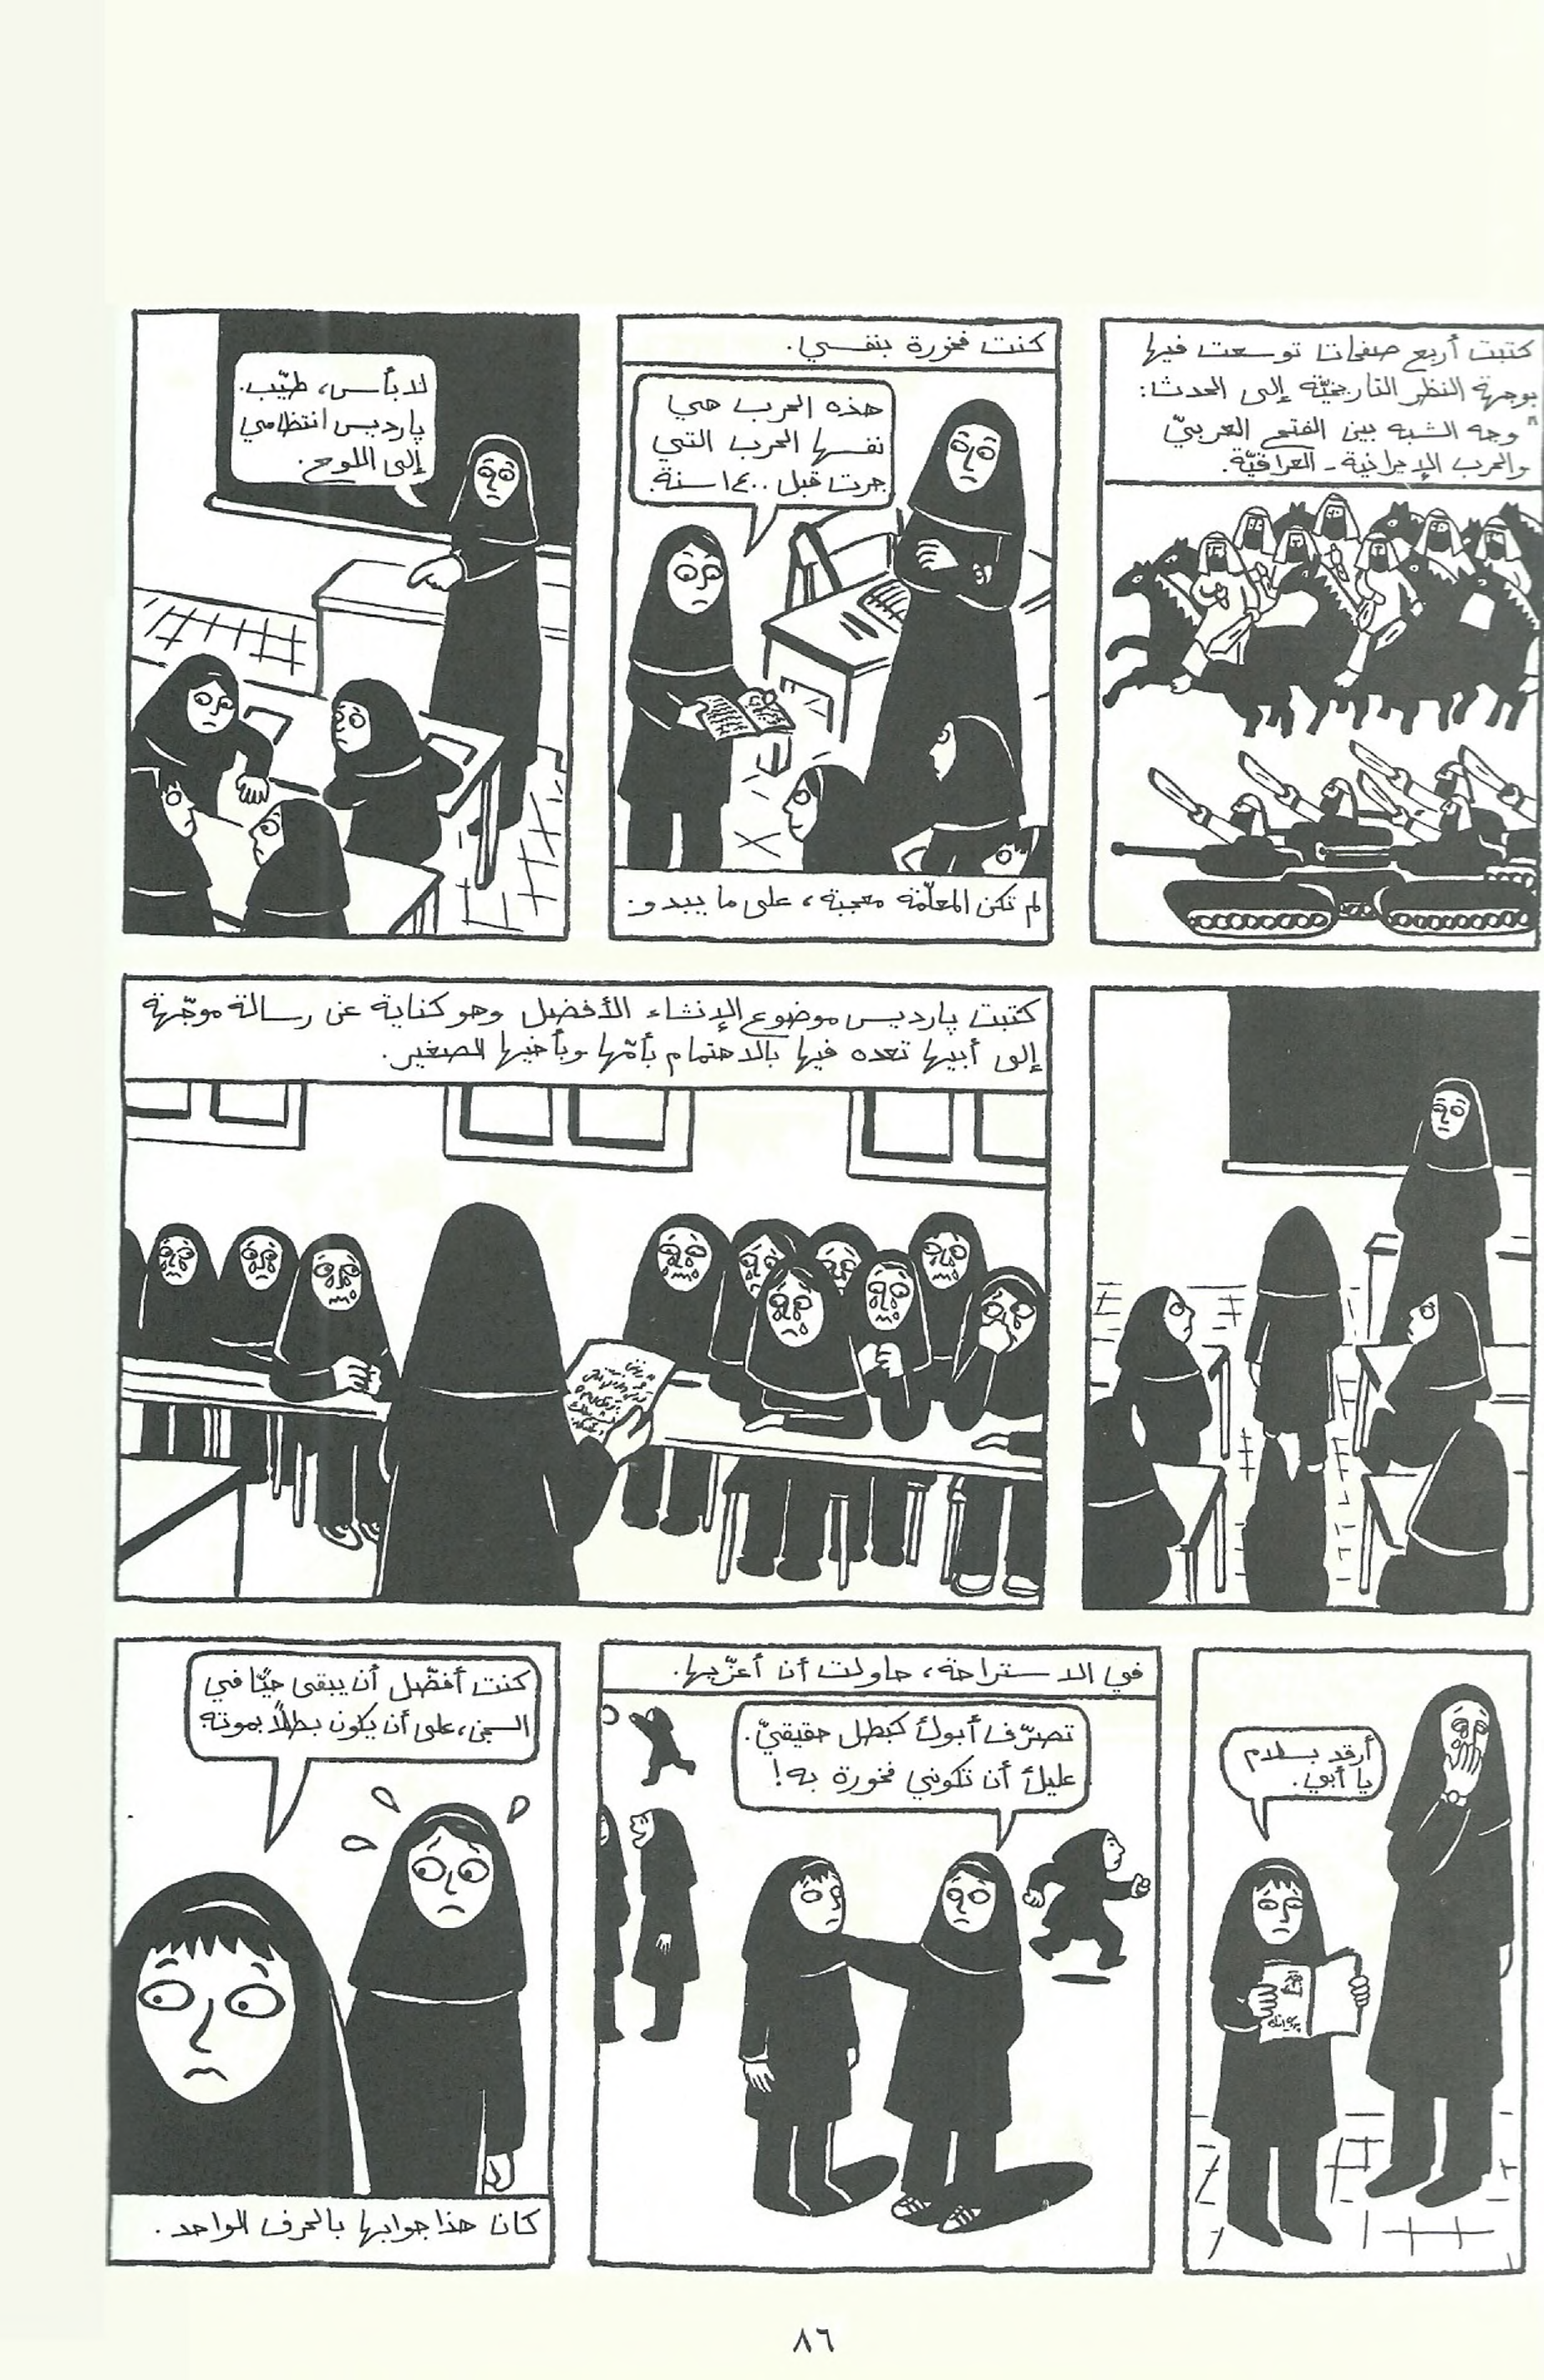 كتبت أربع صفحات توسعت فيها
بوجهة النظر التاريخيّة إلى الحدث:
"وجه الشبه بين الفتح العربيّ
والحرب الإيرانية - العراقيّة.
كنت فخورة بنفسي.
هذه الحرب هي
نفسها الحرب التي
جرت قبل ١٤٠٠ سنة.
لم تكن المعلّمة معجبة، على ما يبدو.
لا بأس، طيّب.
پارديس انتظامي
إلى اللوح.
كتبت پارديس موضوع الإنشاء الأفضل وهو كناية عن رسالة موجّهة
إلى أبيها تعده فيها بالاهتمام بأمّها وبأخيها الصغير.
أرقد بسلام
يا أبي.
في الاستراحة، حاولت أن أعزّيها.
تصرّف أبوك كبطل حقيقيّ.
عليك أن تكوني فخورة به!
كنت أفضّل أن يبقى حيًّا في
السجن، على أن يكون بطلًا بموته.
كان هذا جوابها بالحرف الواحد.
٨٦